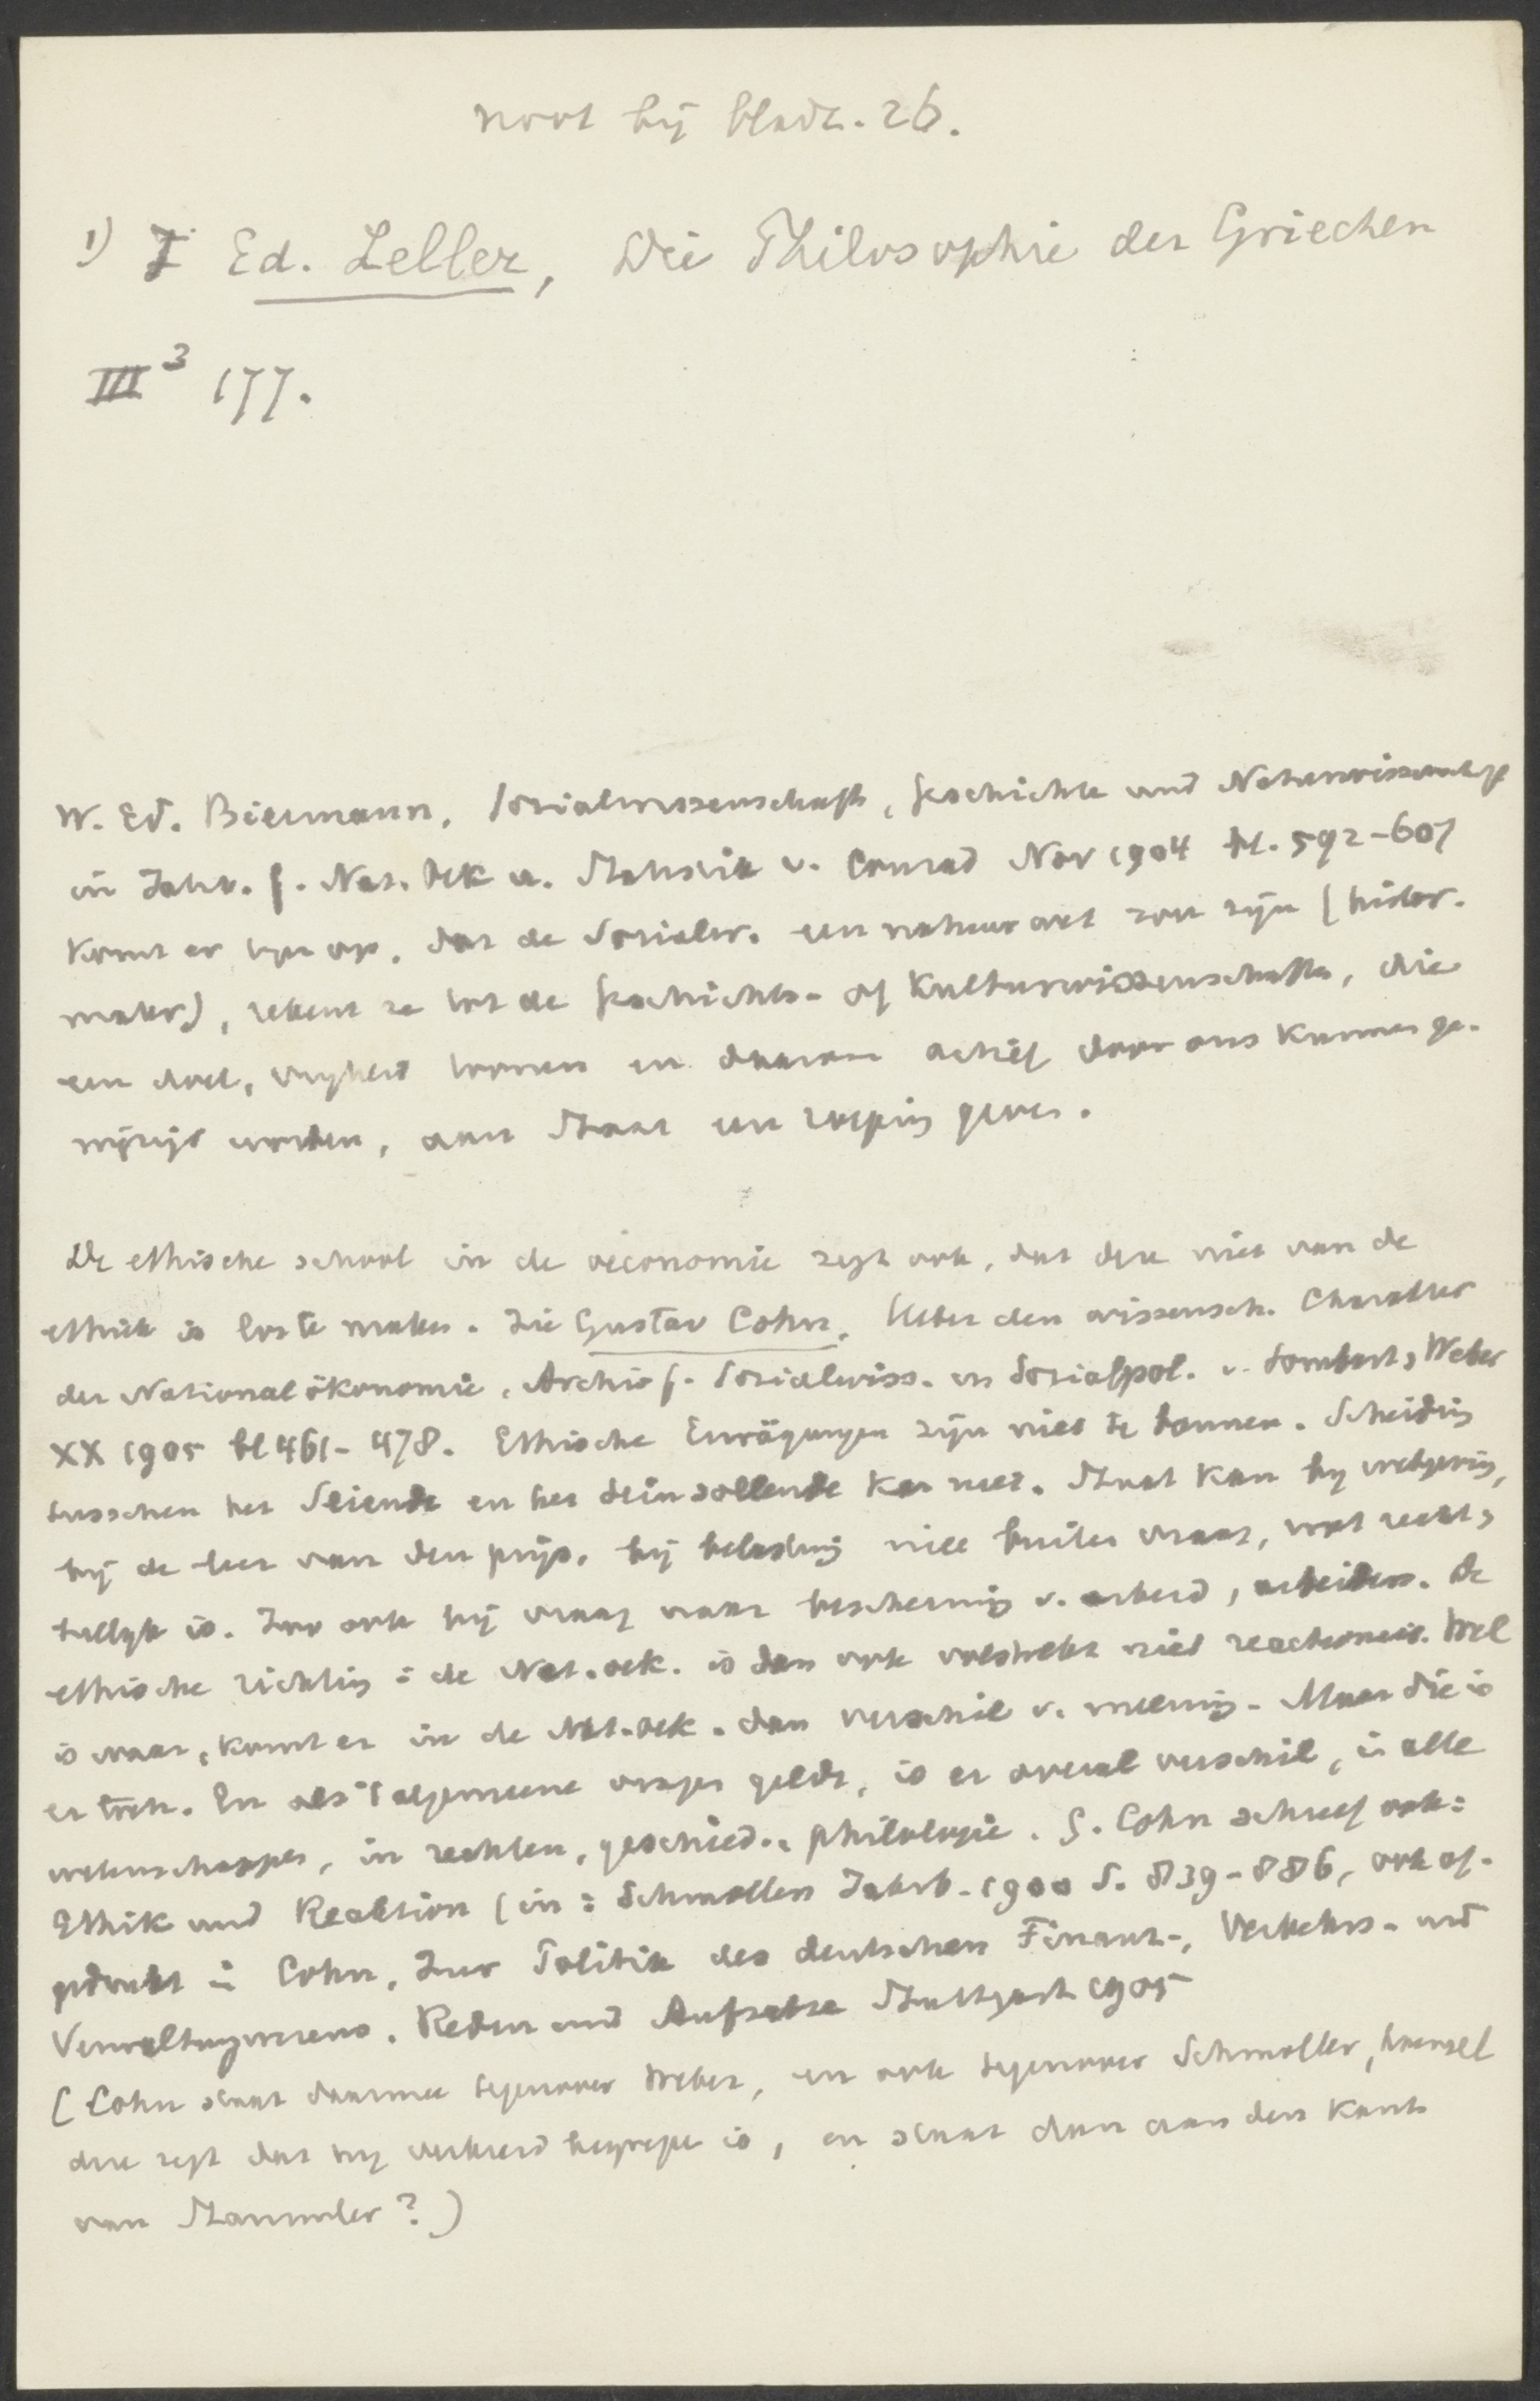 noot bij bladz. 26.
1) I Ed. Zeller, Die Philosophie der Griechen
III³ 177.
W. Ed. Biermann, Sozialwissenschaft, Geschichte und Naturwissenschaft
in Jahrb. f. Nat. Oek u. Statistik v. Conrad Nov 1904 bl. 592-607
komt er tegen op, dat de Sozialw. een natuurwet zou zijn (histor.
mater), rekent ze tot de Geschichts- of Kulturwissenschaften, die
een doel, vrijheid tonen en daarom actief door ons kunnen ge-
wijzigd worden, aan Staat een roeping geven.
De ethische school in de oeconomie zegt ook, dat deze niet van de
ethiek is los te maken. Zie Gustav Cohn, Ueber den wissensch. Charakter
der Nationalökonomie, Archiv f. Sozialwiss. en Sozialpol. v. Sombart, Weber
XX 1905 bl 461-478. Ethische Erwägungen zijn niet te bannen. Scheiding
tusschen het Seiende en het Seinsollende kan niet. Staat kan bij wetgeving,
bij de leer van den prijs, bij belasting niet buiten vraag, wat recht,
billijk is. Zoo ook bij vraag naar bescherming v. arbeid, arbeiders. De
ethische richting i. de Nat. oek. is dan ook volstrekt niet reactionair. Wel
is waar, komt er in de Nat. oek. dan verschil v. meening. Maar die is
er toch. En als 't algemeene vragen geldt, is er overal verschil, in alle
wetenschappen, in rechten, geschied., philologie. G. Cohn schreef ook:
Ethik und Reaktion (in: Schmollers Jahrb. 1900 S. 839-886, ook af-
gedrukt in Cohn, Zur Politik des deutschen Finanz-, Verkehrs- und
Verwaltungswesens. Reden und Aufsatze Stuttgart 1905
(Cohn staat daarmee tegenover Weber, en ook tegenover Schmoller, hoewel
deze zegt dat hij verkeerd begrepen is, en staat dan aan den kant
van Stammler?)